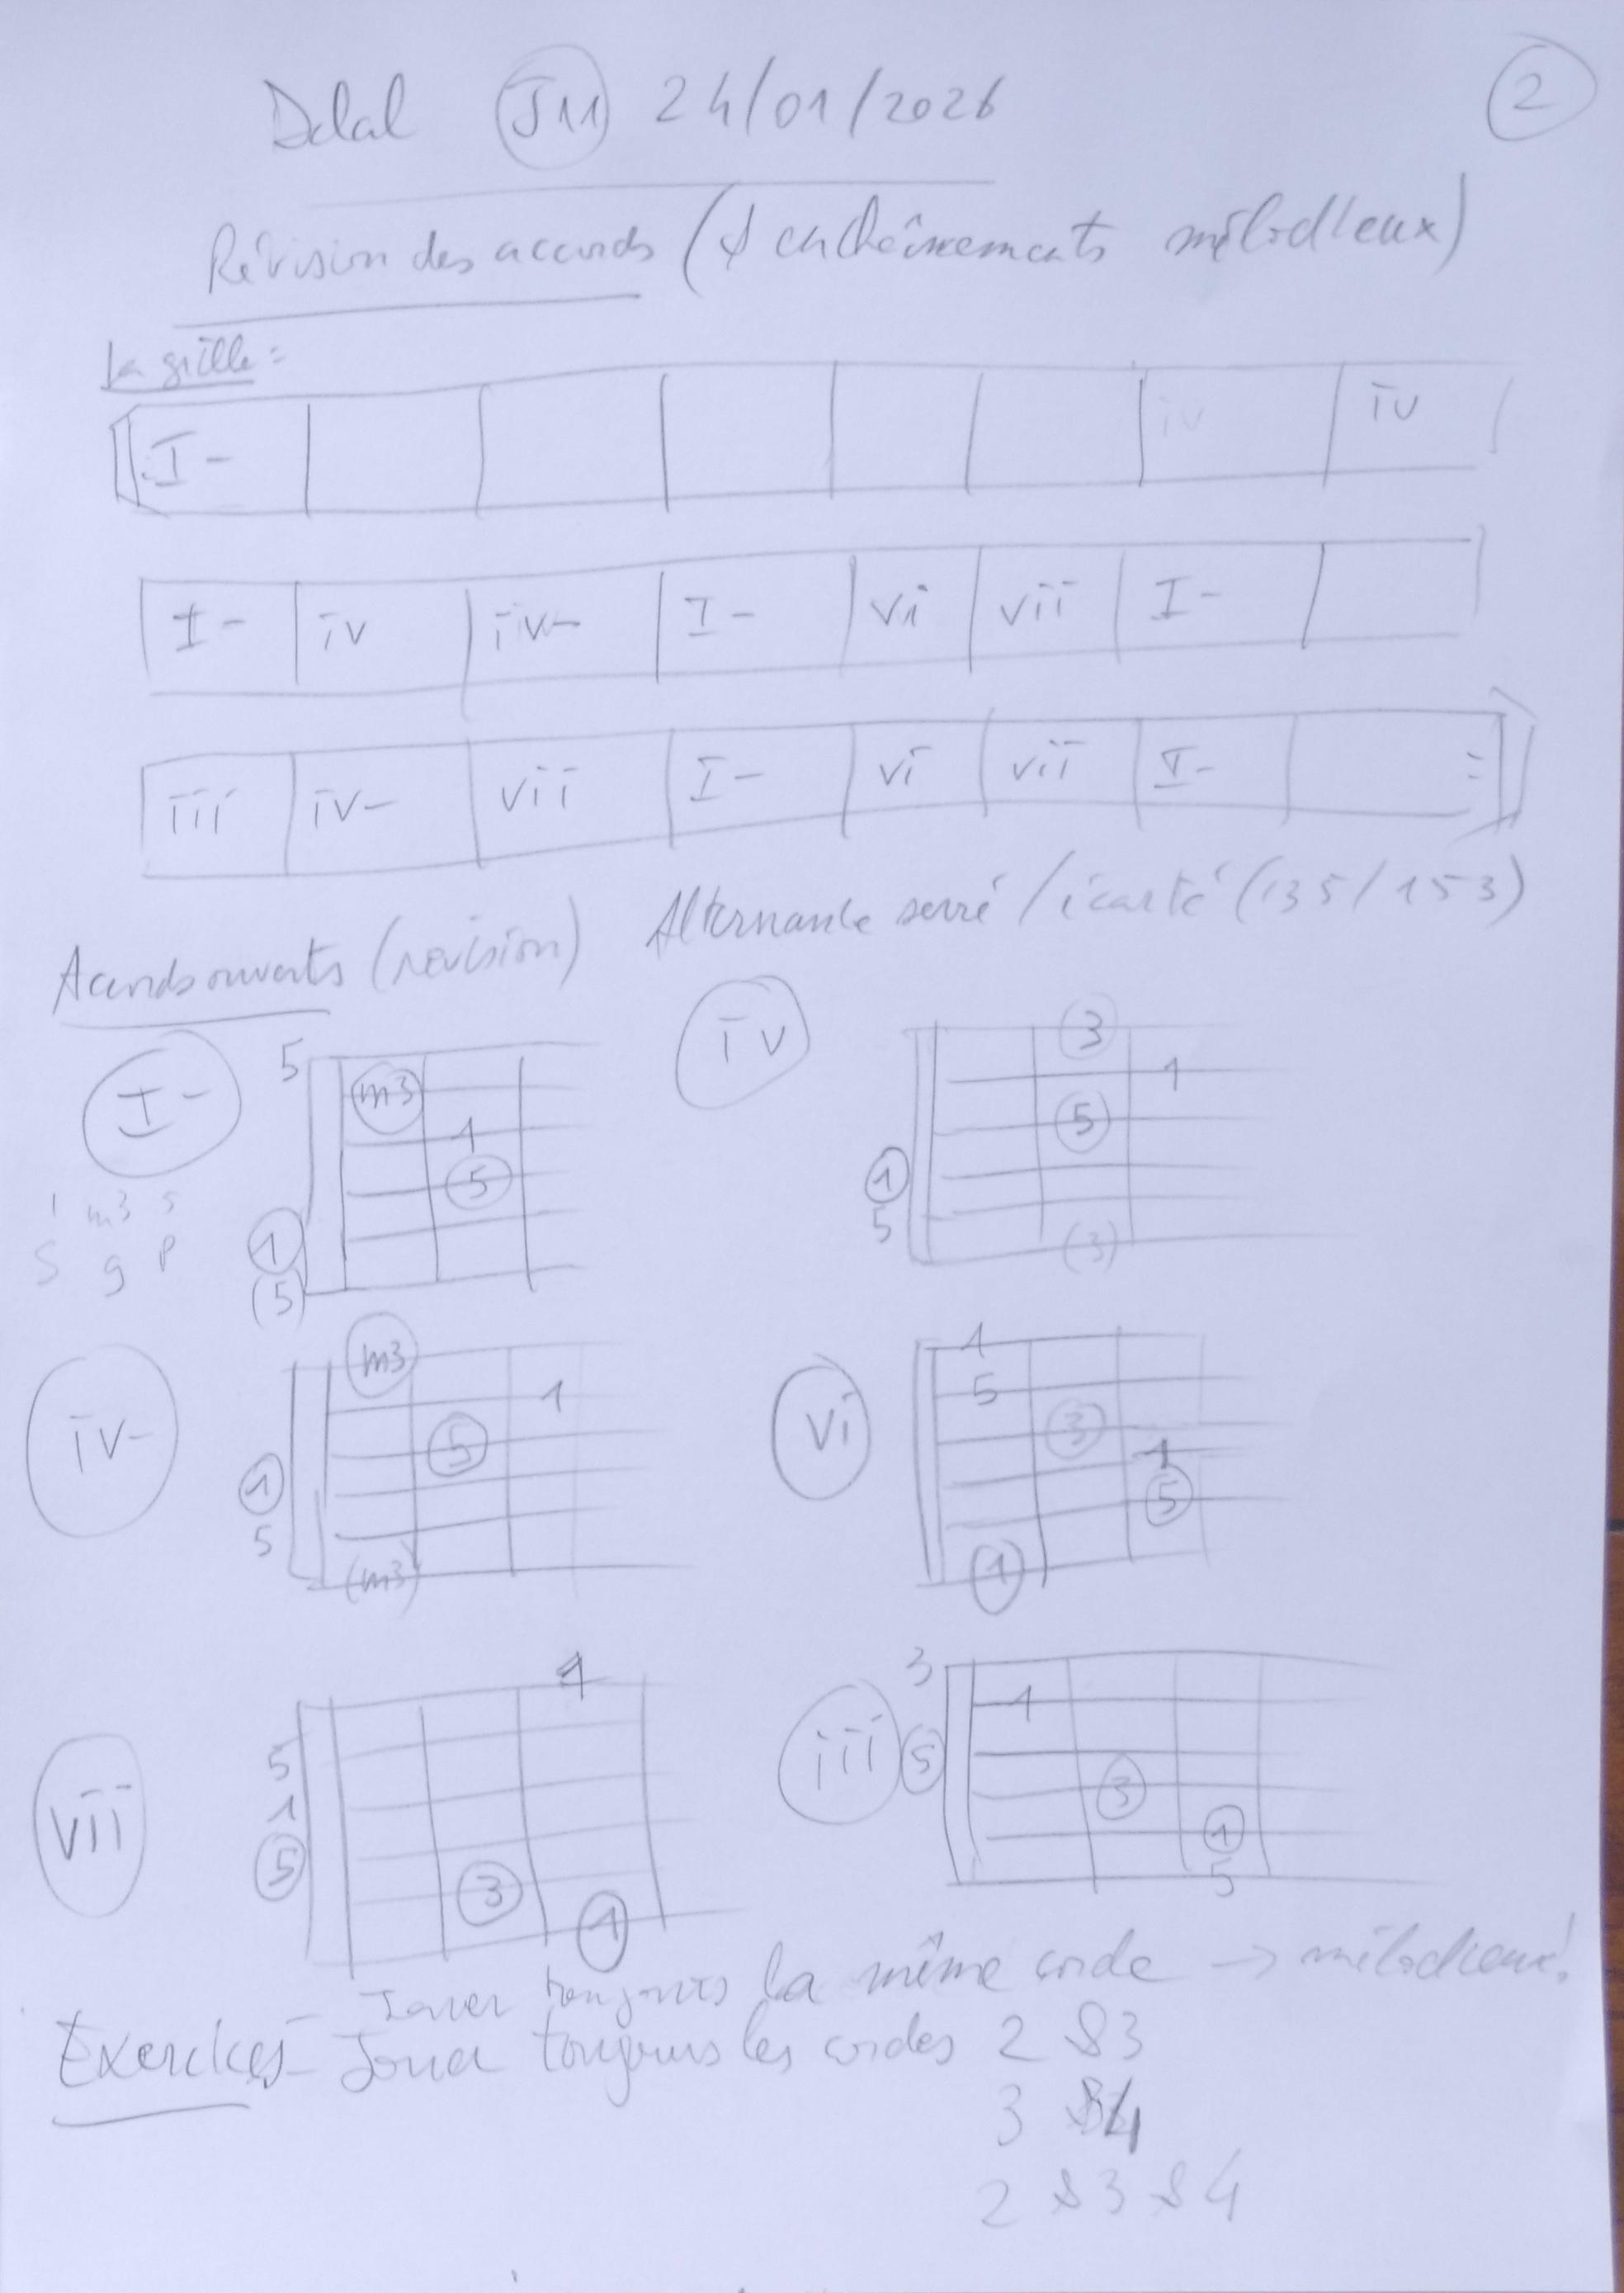 Dalal J11 24/01/2026 2
Révision des accords (& enchaînements mélodieux)
La grille :
I- iv iv
I- iv iv- I- vi vii I-
iii iv- vii I- vi vii I- :
Accords ouverts (révision) Alternance serré / écarté (135/153)
I- 5 m3 1 5 1 (5)
1 m3 5
S g p
iv 3 1 5 1 5 (3)
iv- m3 1 5 1 5 (m3)
vi 1 5 3 1 5 1
vii 1 5 1 5 3 1
iii 3 1 5 3 1 5
- Jouer toujours la même corde → mélodieux!
Exercices - Jouer toujours les cordes 2 & 3
3 & 4
2 & 3 & 4